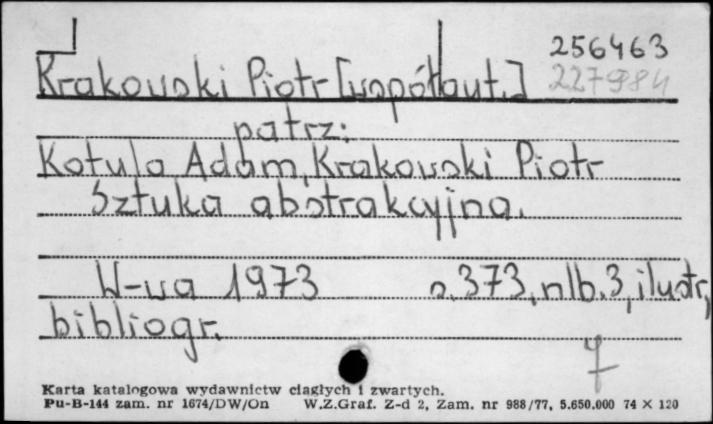 256463
Krakowski Piotr [współaut.] 227984
patrz:
Kotula Adam, Krakowski Piotr
Sztuka abstrakcyjna.
W-wa 1973 s. 373, nlb. 3, ilustr,
bibliogr.
Karta katalogowa wydawnictw ciągłych i zwartych.
Pu-B-144 zam. nr 1674/DW/On W.Z.Graf. Z-d 2, Zam. nr 988/77, 5.650.000 74 X 120